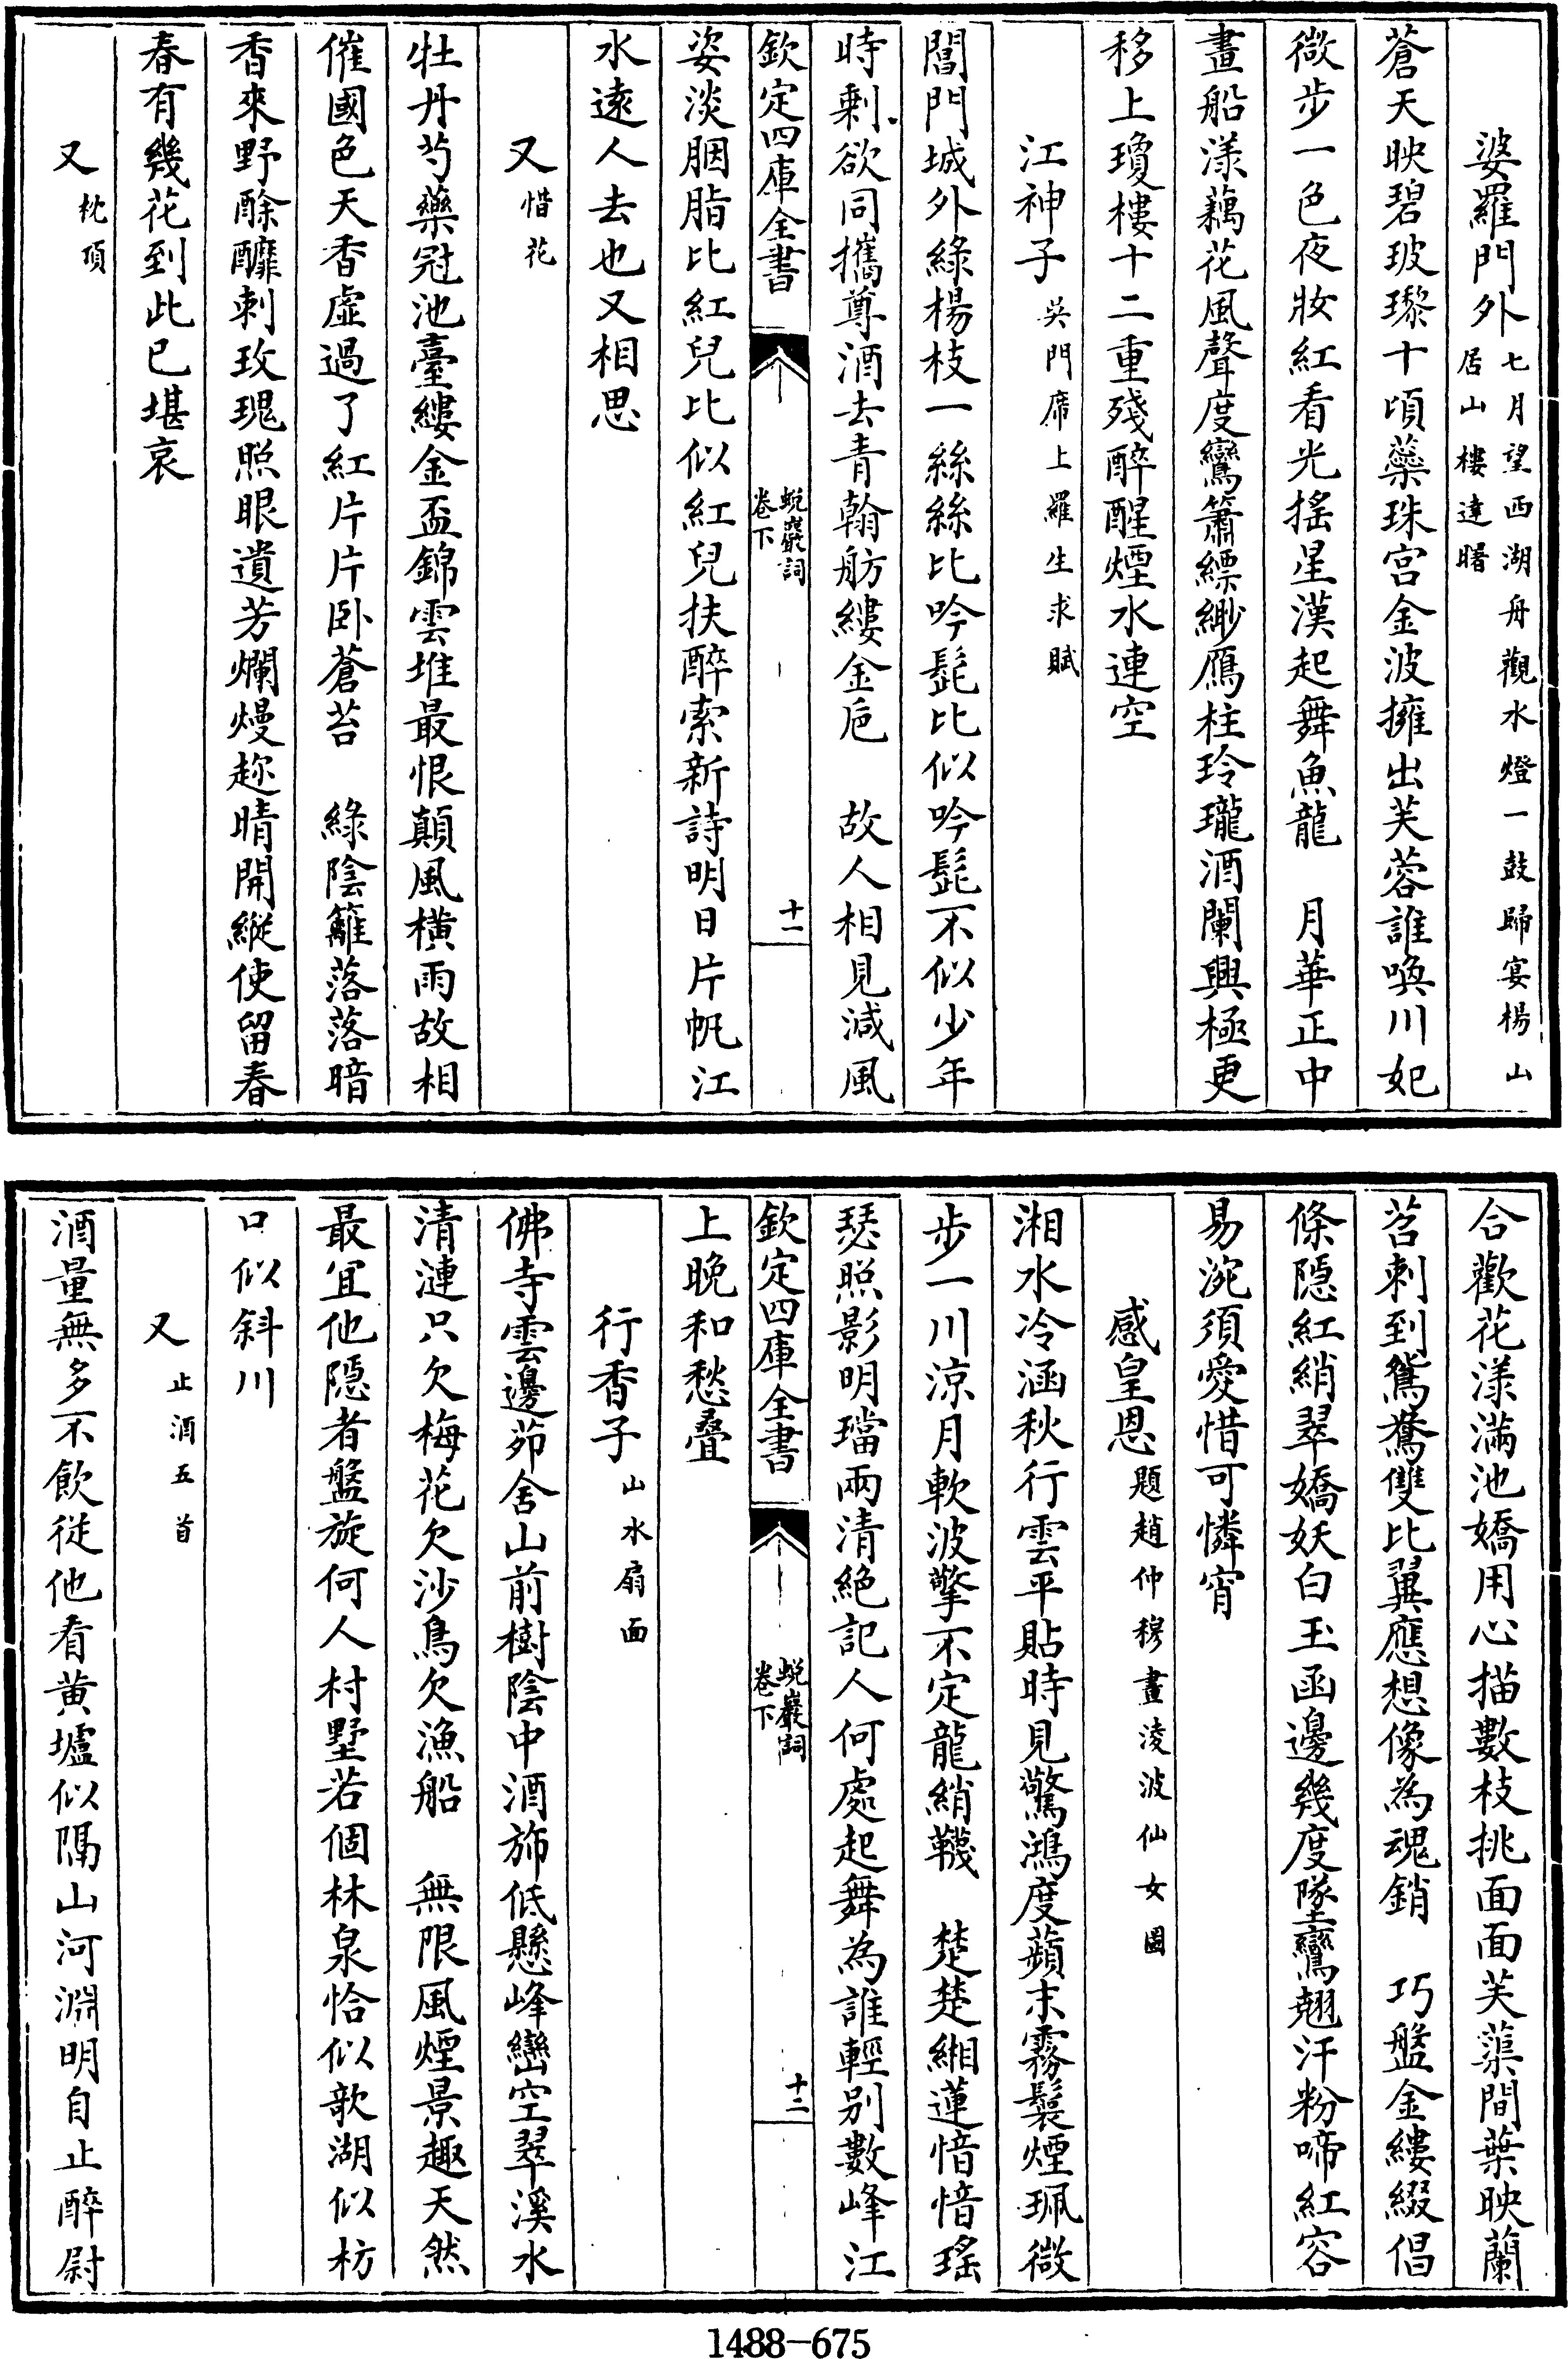 婆羅門外七月望西湖舟觀水燈一鼓歸宴楊山居山樓達曙
蒼天映碧玻瓈十頃蘂珠宮金波擁出芙蓉誰喚川妃
微步一色夜妝紅看光搖星漢起舞魚龍　月華正中
畫船漾藕花風聲度鸞簫縹緲鴈柱玲瓏酒闌興極更
移上瓊樓十二重殘醉醒煙水連空
江神子吳門席上羅生求賦
閶門城外綠楊枝一絲絲比吟髭比似吟髭不似少年
時剩欲同攜尊酒去青翰舫縷金巵　故人相見減風
欽定四庫全書　蛻巖詞卷下　十一
姿淡胭脂比紅兒比似紅兒扶醉索新詩明日片帆江
水遠人去也又相思
又惜花
牡丹芍藥冠池臺縷金盃錦雲堆最恨顛風橫雨故相
催國色天香虛過了紅片片卧蒼苔　綠陰籬落落暗
香來野酴醿刺玫瑰照眼遺芳爛熳趂晴開縱使留春
春有幾花到此已堪哀
又枕頂
合歡花漾滿池嬌用心描數枝挑面面芙蕖間葉映蘭
苕刺到鴛鴦雙比翼應想像為魂銷　巧盤金縷綴倡
條隱紅綃翠嬌妖白玉函邊幾度墜鸞翹汗粉啼紅容
易涴須愛惜可憐宵
感皇恩題趙仲穆畫淩波仙女圖
湘水冷涵秋行雲平貼時見驚鴻度蘋末霧鬟煙珮微
步一川涼月軟波擎不定龍綃韈　楚楚緗蓮愔愔瑤
瑟照影明璫兩清絕記人何處起舞為誰輕別數峰江
欽定四庫全書　蛻巖詞卷下　十二
上晚和愁疊
行香子山水扇面
佛寺雲邊茆舍山前樹陰中酒斾低懸峰巒空翠溪水
清漣只欠梅花欠沙鳥欠漁船　無限風煙景趣天然
最宜他隱者盤旋何人村墅若個林泉恰似欹湖似枋
口似斜川
又止酒五首
酒量無多不飲從他看黃壚似隔山河淵明自止醉尉
1488-675